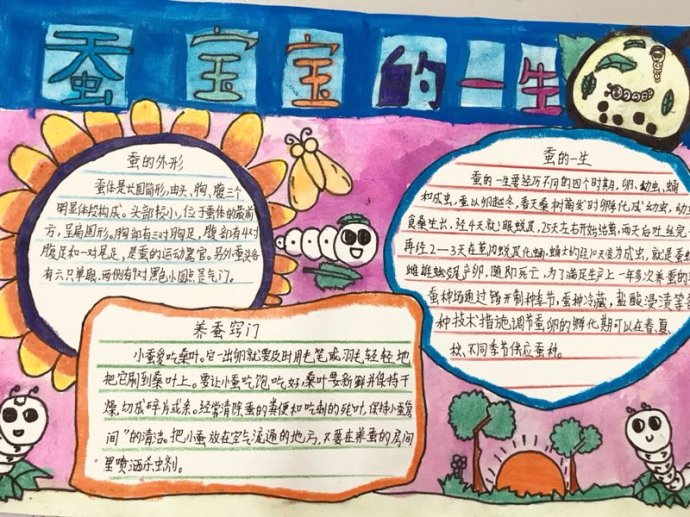 蚕宝宝的一生
蚕的外形
蚕体是长圆筒形,由头、胸、腹三个
明显体段构成。头部较小,位于蚕体的最前
方,呈扁圆形。胸部有三对胸足,腹部有4对
腹足和一对尾足,是蚕的运动器官。另外蚕头各
有六只单眼,两侧有9对黑色小圆点是气门。
养蚕窍门
小蚕爱吃桑叶。它一出卵就要及时用毛笔或羽毛轻轻地
把它刷到桑叶上。要让小蚕吃饱吃好,桑叶要新鲜并保持干
燥,切成碎片或条。经常清除蚕的粪便和吃剩的残叶,保持小蚕
间”的清洁。把小蚕放在空气流通的地方,不要在养蚕的房间
里喷洒杀虫剂。
蚕的一生
蚕的一生要经历不同的四个时期,卵、幼虫、蛹
和成虫,蚕以卵越冬,春天桑树萌发时孵化成幼虫,幼
食桑生长,经4天就眠蜕皮,25天左右开始结茧,两天后吐丝完
再经2—3天在茧内蜕皮化蛹,蛹大约经10天变为成虫,就是蚕
雌雄蛾交尾产卵,随即死亡,为了满足生产上一年多次养蚕的
蚕种场通过错开制种季节,蚕种冷藏,盐酸浸渍等
种技术措施调节蚕卵的孵化期可以在春、夏
秋、不同季节供应蚕种。